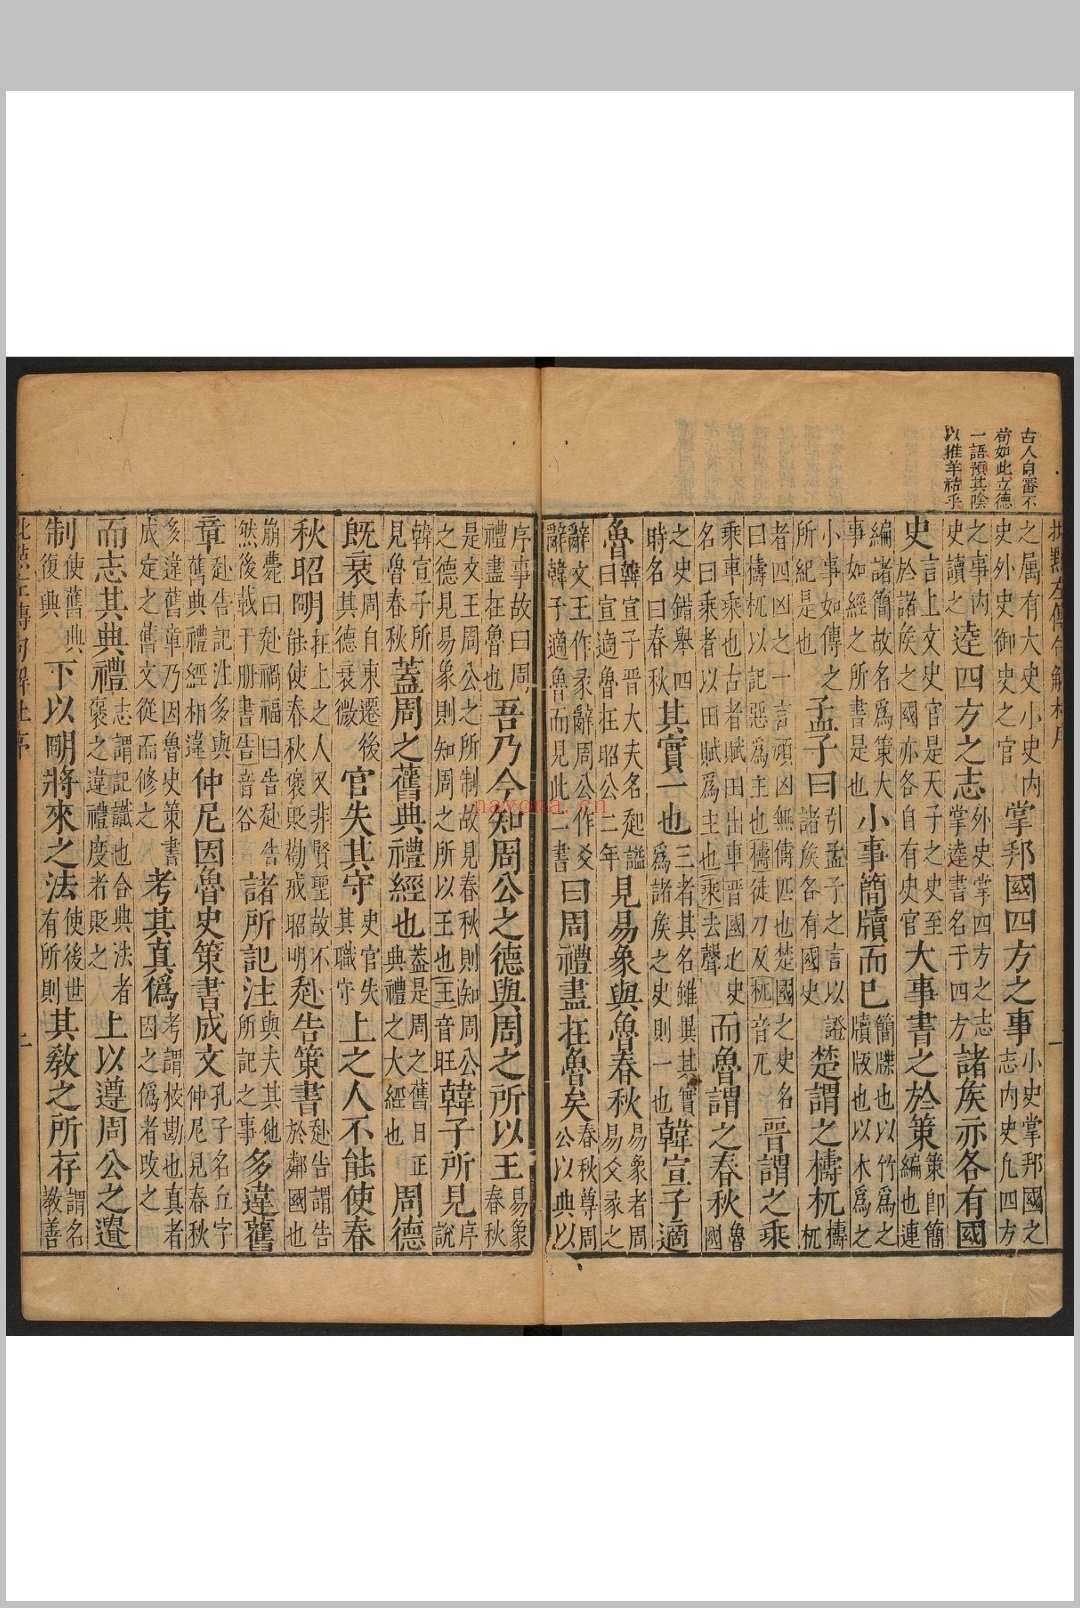 古人自署不
苟如此立德
一語預其陰
以推羊祜乎
之属有大史小史内史外史御史之官掌邦國四方之事小史掌邦國之志内史凡四方
之事内史讀之逹四方之志外史掌四方之志掌逹書名于四方諸矦亦各有國
史言上文史官是天子之史至於諸矦之國亦各自有史官大事書之於策策即簡編也連
編諸簡故名爲策大事如經之所書是也小事簡牘而已簡牒也以竹爲之牘版也以木爲之
小事如傳之所紀是也孟子曰引孟子之言以證諸矦各有國史楚謂之檮杌檮杌
者四凶之一言頑凶無儔匹也楚國之史名曰檮杌以記惡爲主也檮徒刀反杌音兀晋謂之乘
乘車乘也古者賦田出車晋國史名曰乘者以田賦爲主也乘去聲而魯謂之春秋魯國
之史錯舉四時名曰春秋其實一也三者其名雖異其實爲諸矦之史則一也韓宣子適
魯韓宣子晋大夫名起謚曰宣適魯在昭公二年見易象與魯春秋易象者周易爻彖之
辭文王作彖辭周公作爻辭韓子適魯而見此二書曰周禮盡在魯矣春秋尊周公以典以
序事故曰周禮盡在魯也吾乃今知周公之德與周之所以王易象春秋
是文王周公之所制故見春秋則知周公之德見易象則知周之所以王也王音旺韓子所見序說
韓宣子所見魯春秋蓋周之舊典禮經也蓋是周之舊日正典禮之大經也周德
既衰周自東遷後其德衰微官失其守史官失其職守上之人不能使春
秋昭明在上之人又非賢聖故不能使春秋褒貶勸戒昭明赴告策書赴告謂告於鄰國也
崩薨曰赴禍福曰告赴告然後載于册書告音谷諸所記注與夫其他所記之事多違舊
章赴告記注多與舊典禮經相違仲尼因魯史策書成文孔子名丘字仲尼見春秋
多違舊章乃因魯史策書成定之舊文從而修之考其真僞考謂校勘也真者因之僞者改之
而志其典禮志謂記識也合典法者褒之違禮度者貶之上以遵周公之遺
制使舊典復興下以明將來之法使後世有所則其教之所存謂名教善